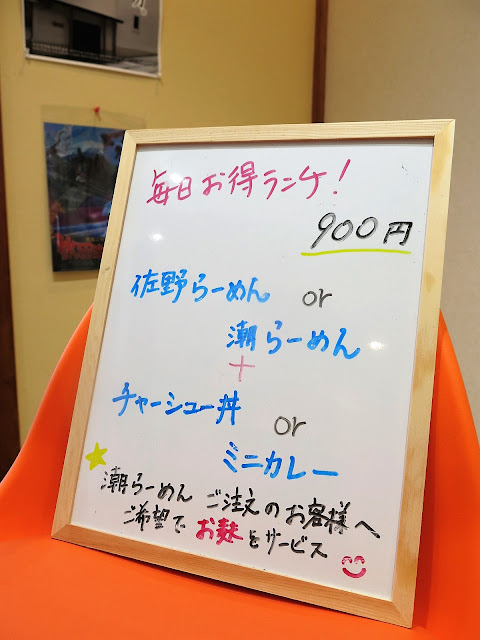 毎日お得ランチ!
900円
佐野らーめん or
潮らーめん
+
チャーシュー丼 or
ミニカレー
潮らーめん ご注文のお客様へ
ご希望で お麩をサービス